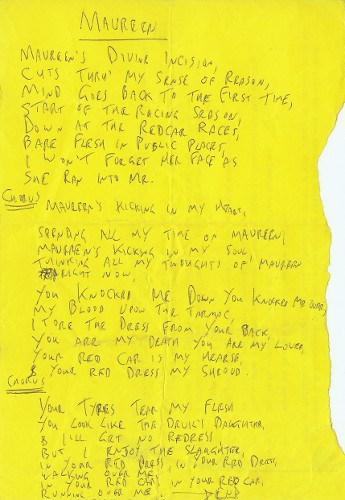 MAUREEN
MAUREEN'S DIVINE INCISION,
CUTS THRU' MY SENSE OF REASON,
MIND GOES BACK TO THE FIRST TIME,
START OF THE RACING SEASON,
DOWN AT THE REDCAR RACES,
BARE FLESH IN PUBLIC PLACES,
I WON'T FORGET HER FACE AS
SHE RAN INTO ME.
CHORUS
MAUREEN'S KICKING IN MY HEART,
SPENDING ALL MY TIME ON MAUREEN,
MAUREEN'S KICKING IN MY SOUL,
THINKING ALL MY THOUGHTS OF MAUREEN
RIGHT NOW,
YOU KNOCKED ME DOWN YOU KNOCKED ME OVER,
MY BLOOD UPON THE TARMAC,
I TORE THE DRESS FROM YOUR BACK
YOU ARE MY DEATH YOU ARE MY LOVER
YOUR RED CAR IS MY HEARSE,
& YOUR RED DRESS MY SHROUD.
CHORUS
YOUR TYRES TEAR MY FLESH
YOU LOOK LIKE THE DEVIL'S DAUGHTER,
& I'LL GET NO REDRESS
BUT I ENJOY THE SLAUGHTER,
IN YOUR RED DRESS, IN YOUR RED DRESS,
WALKING OVER ME,
IN YOUR RED CAR, IN YOUR RED CAR,
RUNNING OVER ME